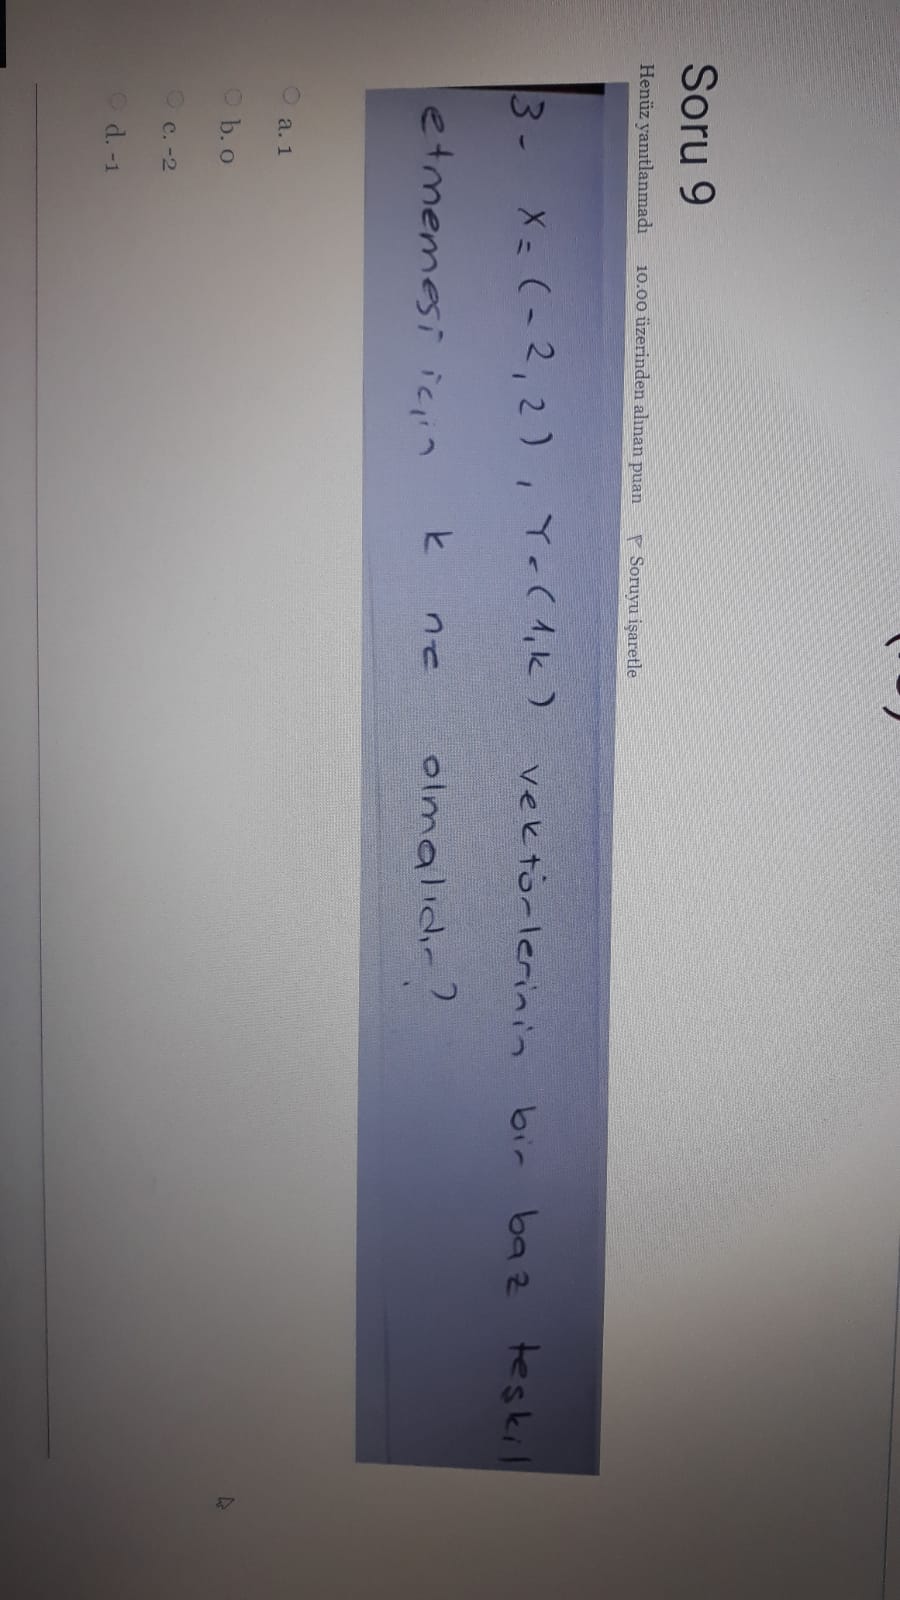 Soru 9
Henüz yanıtlanmadı 10.00 üzerinden alınan puan Soruyu işaretle
3- X=(-2,2), Y=(1,k) vektörlerinin bir baz teşkil
etmemesi için k ne olmalıdır?
a. 1
b. 0
c. -2
d. -1